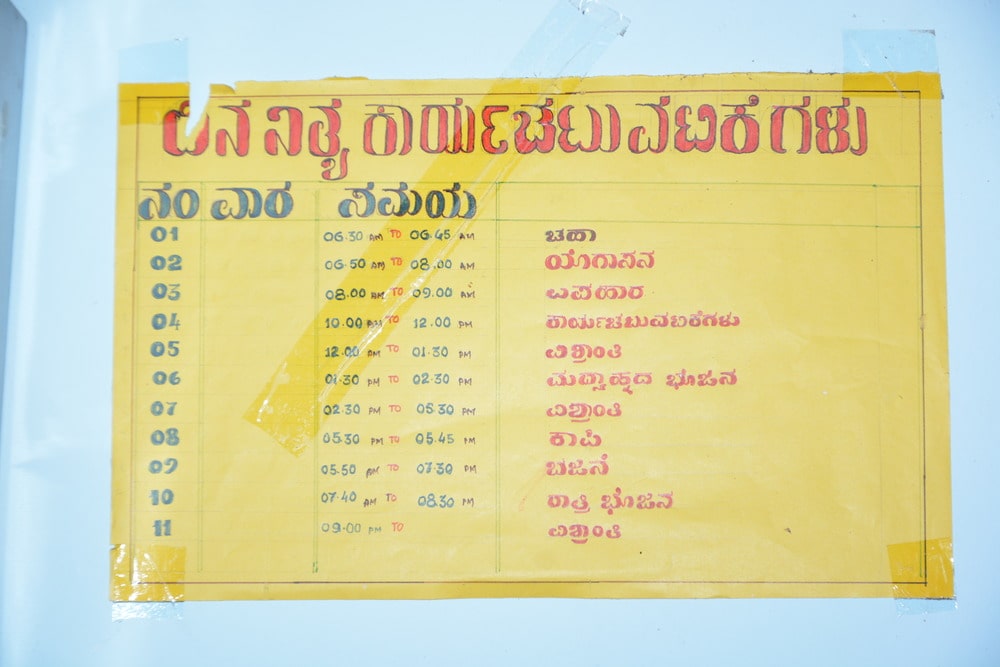 ದಿನ ನಿತ್ಯ ಕಾರ್ಯಚಟುವಟಿಕೆಗಳು
ನಂ ವಾರ ಸಮಯ
01 06.30 AM TO 06.45 AM ಚಹಾ
02 06.50 AM TO 08.00 AM ಯೋಗಾಸನ
03 08.00 AM TO 09.00 AM ಉಪಹಾರ
04 10.00 AM TO 12.00 PM ಕಾರ್ಯಚಟುವಟಿಕೆಗಳು
05 12.00 PM TO 01.30 PM ವಿಶ್ರಾಂತಿ
06 01.30 PM TO 02.30 PM ಮದ್ಯಾಹ್ನದ ಭೋಜನ
07 02.30 PM TO 05.30 PM ವಿಶ್ರಾಂತಿ
08 05.30 PM TO 05.45 PM ಕಾಪಿ
09 05.50 AM TO 07.30 PM ಬಜನೆ
10 07.40 AM TO 08.30 PM ರಾತ್ರಿ ಭೋಜನ
11 09.00 PM TO ವಿಶ್ರಾಂತಿ